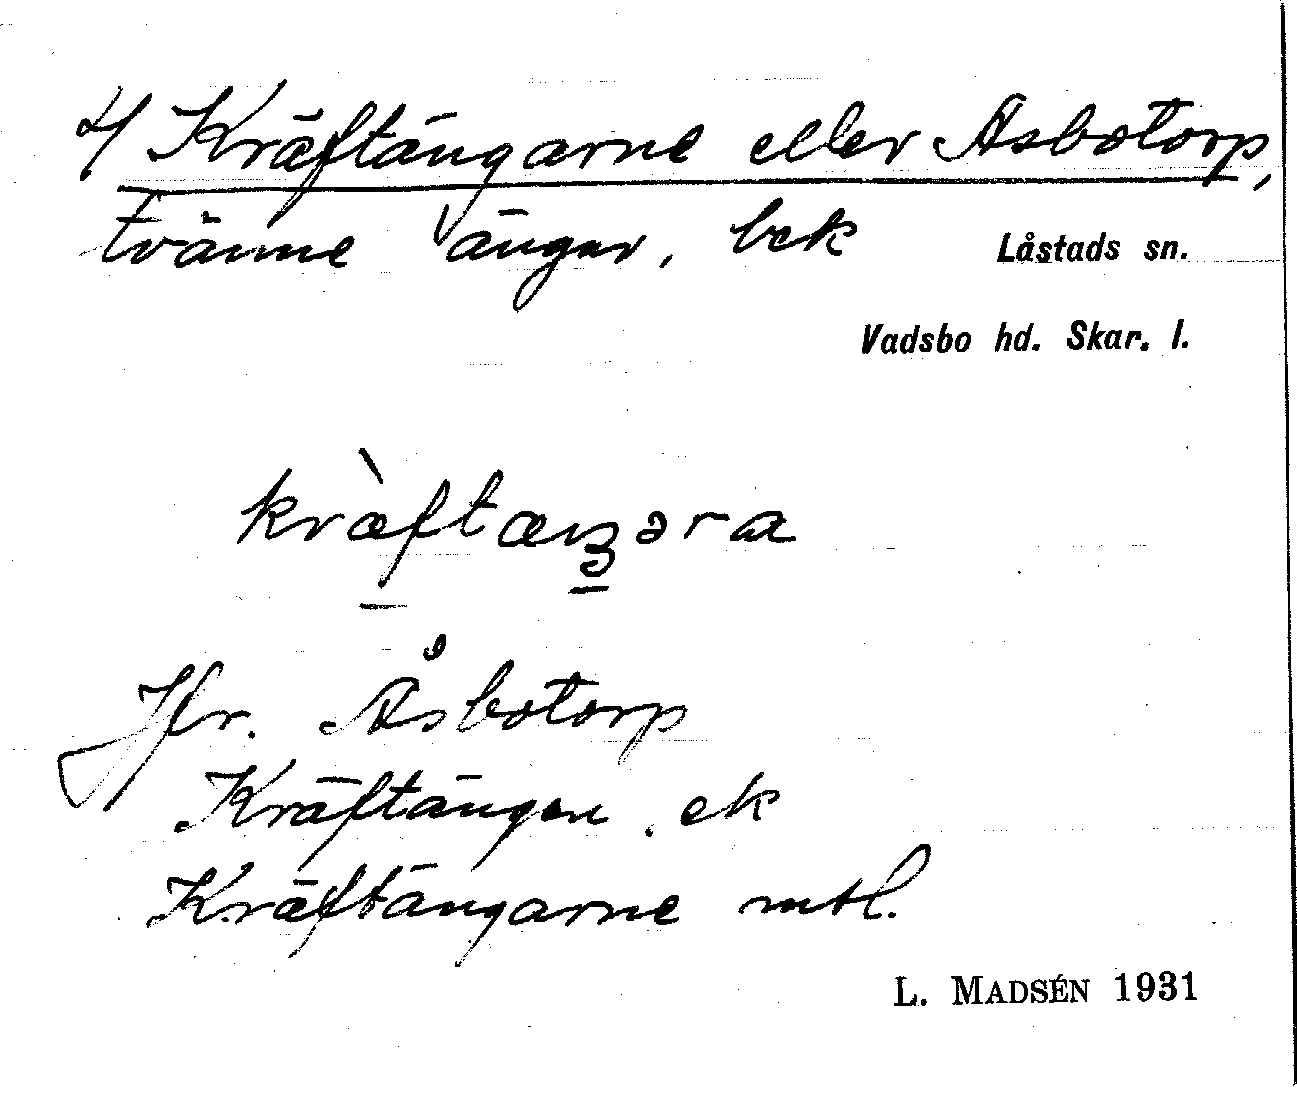 4/ Kräftängarne eller Åsbotorp,
tvänne ängar, bek
Låstads sn.
Vadsbo hd. Skar. l.
kræ̀ftæŋəra
Jfr. Åsbotorp
Kräftängen. ek
Kräftängarne mtl.
L. MADSÉN 1931